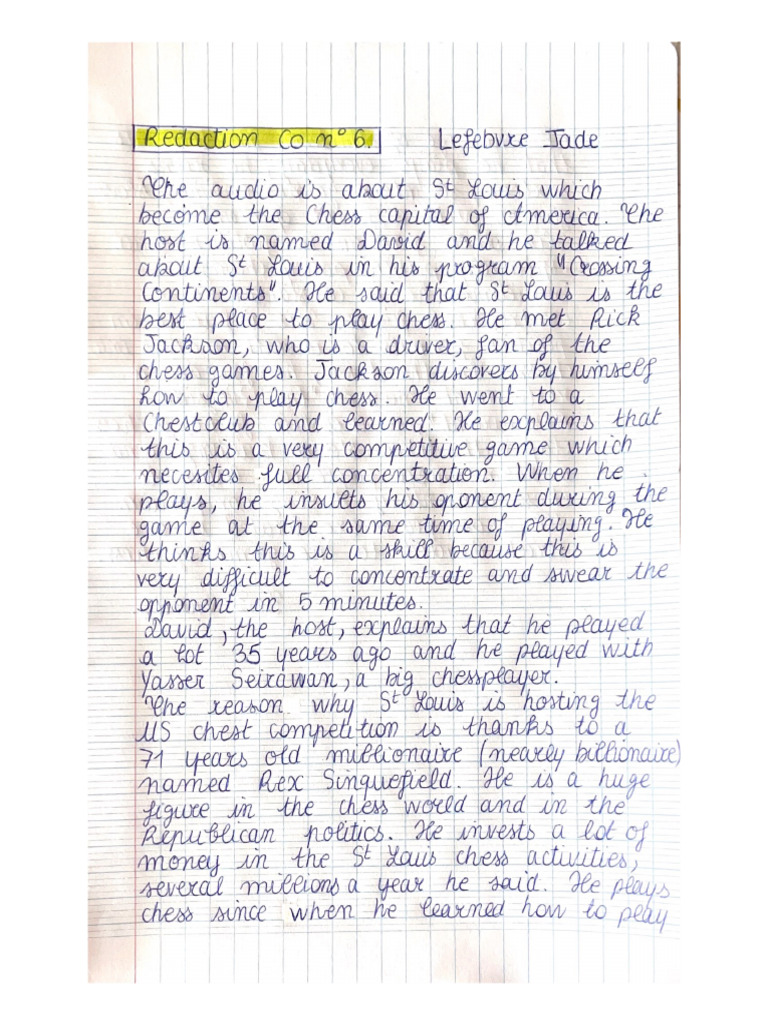 Redaction Co n° 6. Lefebvre Jade
The audio is about St Louis which
become the Chess capital of America. The
host is named David and he talked
about St Louis in his program "Crossing
Continents". He said that St Louis is the
best place to play chess. He met Rick
Jackson, who is a driver, fan of the
chess games. Jackson discovers by himself
how to play chess. He went to a
Chestclub and learned. He explains that
this is a very competitive game which
necesites full concentration. When he
plays, he insults his oponent during the
game at the same time of playing. He
thinks this is a skill because this is
very difficult to concentrate and swear the
opponent in 5 minutes.
David, the host, explains that he played
a lot 35 years ago and he played with
Yasser Seirawan, a big chessplayer.
The reason why St Louis is hosting the
US chest competition is thanks to a
71 years old millionaire (nearly billionaire)
named Rex Sinquefield. He is a huge
figure in the chess world and in the
Republican politics. He invests a lot of
money in the St Louis chess activities,
several millions a year he said. He plays
chess since when he learned how to play